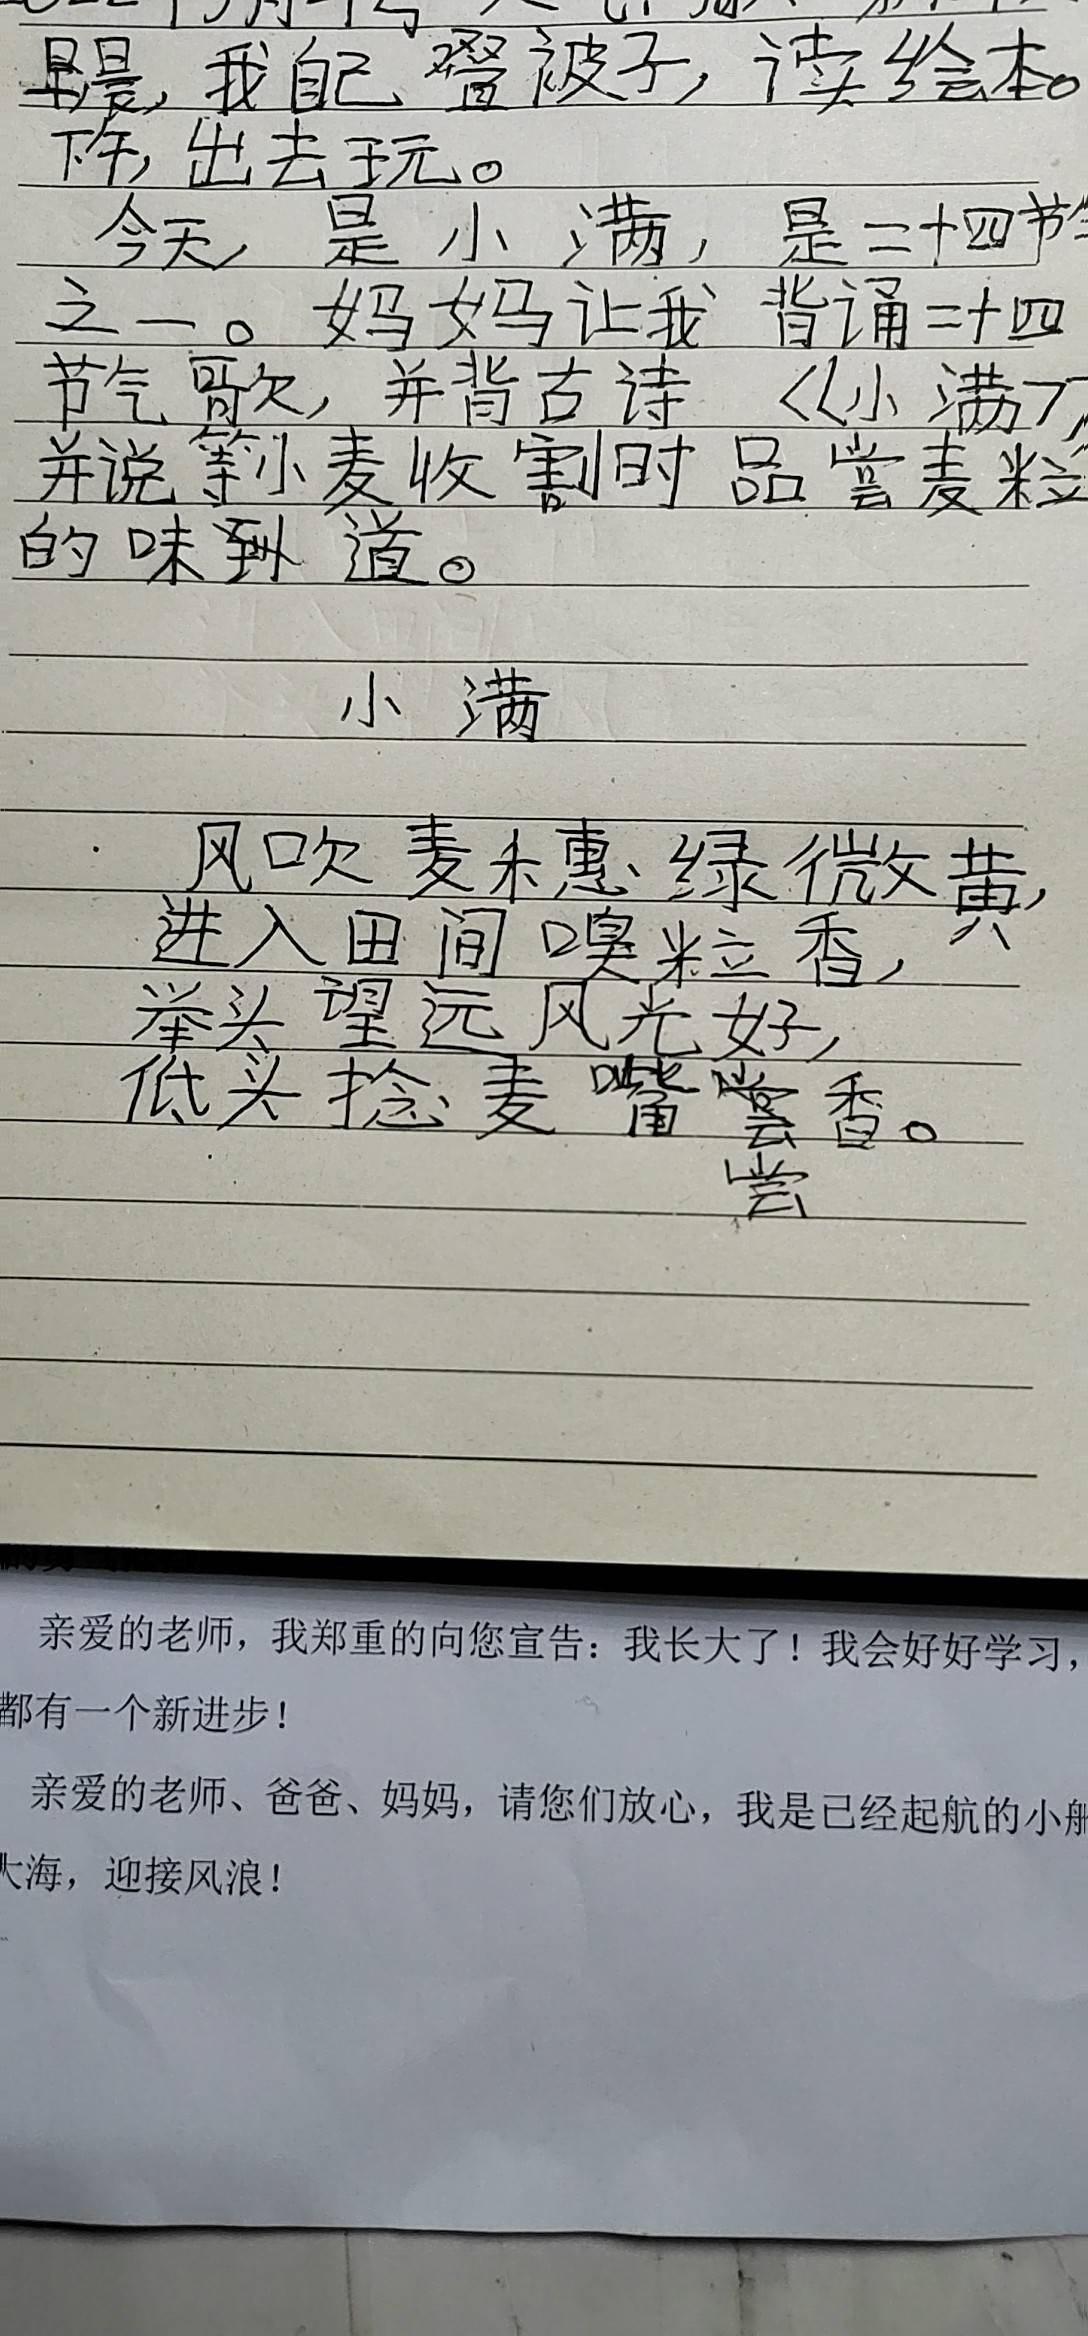 早晨，我自己叠被子，读绘本。
下午，出去玩。
今天，是小满，是二十四节
之一。妈妈让我背诵二十四
节气歌，并背古诗《小满》，
并说等小麦收割时品尝麦粒
的味到道。
小满
风吹麦穗绿微黄，
进入田间嗅粒香，
举头望远风光好，
低头捻麦嘴尝香。
尝
亲爱的老师，我郑重的向您宣告：我长大了！我会好好学习，
都有一个新进步！
亲爱的老师、爸爸、妈妈，请您们放心，我是已经起航的小船
大海，迎接风浪！